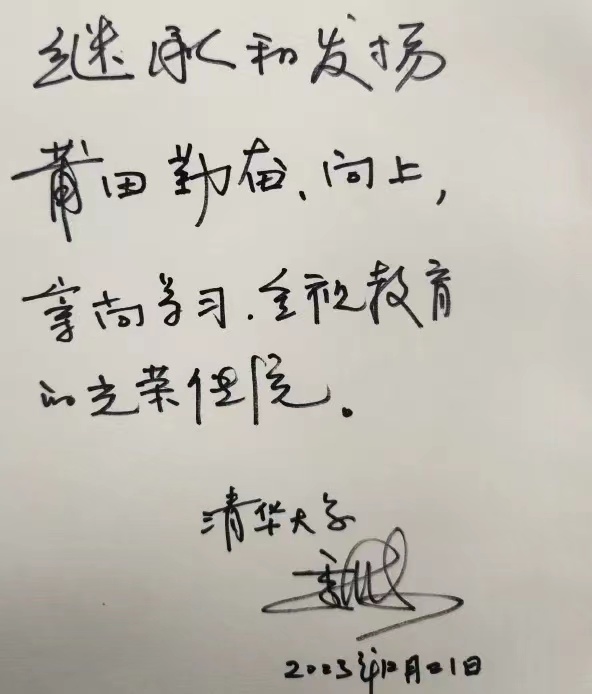 继承和发扬
莆田勤奋、向上，
崇尚学习、重视教育
的光荣传统。
清华大学
2023年12月21日